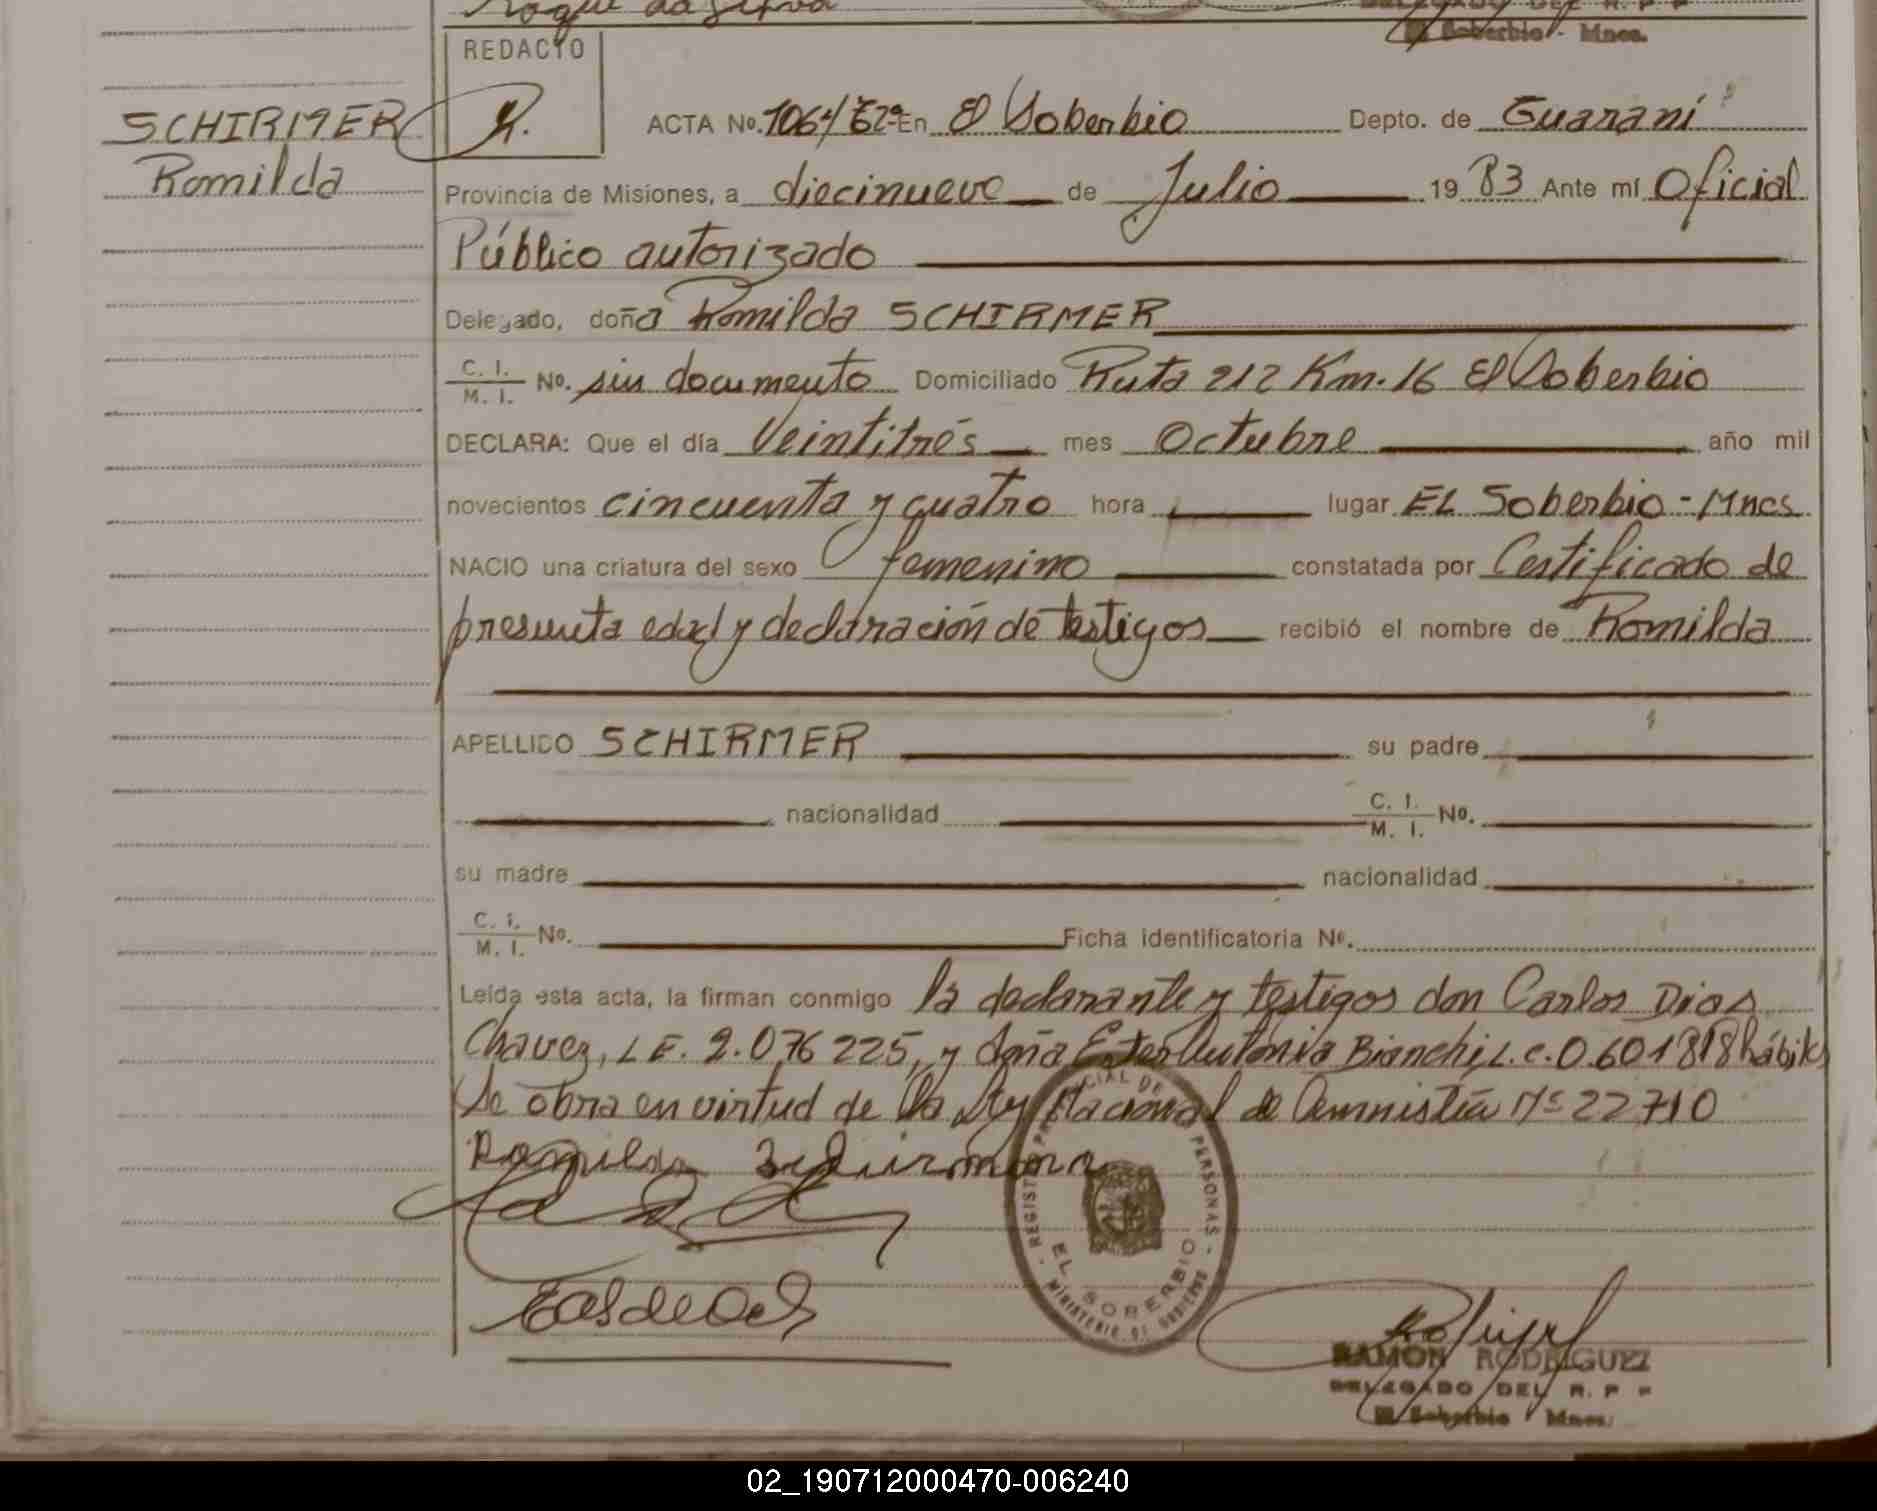 Roque da Silva
DELEGADO DEL R. P. P
El Soberbio - Mnes.
REDACTO
SCHIRMER
Romilda
ACTA No. 1064/ En El Soberbio Depto. de Guaraní
Provincia de Misiones, a diecinueve de Julio 1983 Ante mí Oficial
Público autorizado
Delegado, doña Romilda SCHIRMER
C. I. / M. I. No. sin documento Domiciliado Ruta 212 Km. 16 El Soberbio
DECLARA: Que el día Veintitrés mes Octubre año mil
novecientos cincuenta y cuatro hora lugar EL Soberbio - Mnes
NACIO una criatura del sexo femenino constatada por Certificado de
presunta edad y declaración de testigos recibió el nombre de Romilda
APELLIDO SCHIRMER su padre
nacionalidad C. I. / M. I. No.
su madre nacionalidad
C. I. / M. I. No. Ficha identificatoria No.
Leída esta acta, la firman conmigo la declarante y testigos don Carlos Dias
Chavez, L E. 2.076 225, y doña Ester Antonia Bianchi, L.C. 0.601818 hábiles
Se obra en virtud de la Ley Nacional de Amnistía Nº 22710
REGISTRO PROVINCIAL DE LAS PERSONAS
EL SOBERBIO
MINISTERIO DE GOBIERNO
RAMON RODRIGUEZ
DELEGADO DEL R. P P
El Soberbio Mnes.
02_190712000470-006240